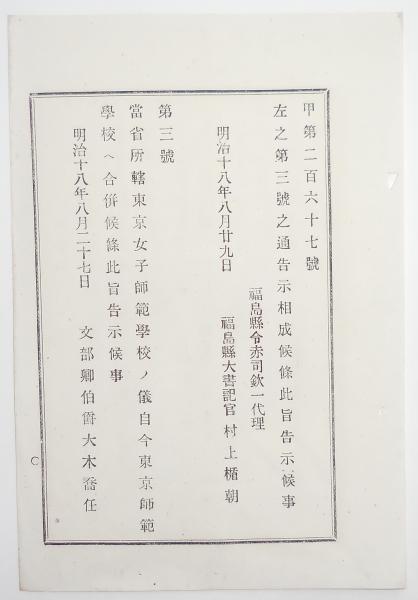 甲第二百六十七號
左之第三號之通告示相成候條此旨告示候事
福島縣令赤司欽一代理
明治十八年八月廿九日　福島縣大書記官村上楯朝
第三號
當省所轄東京女子師範學校ノ儀自今東京師範
學校ヘ合併候條此旨告示候事
明治十八年八月二十七日　文部卿伯爵大木喬任